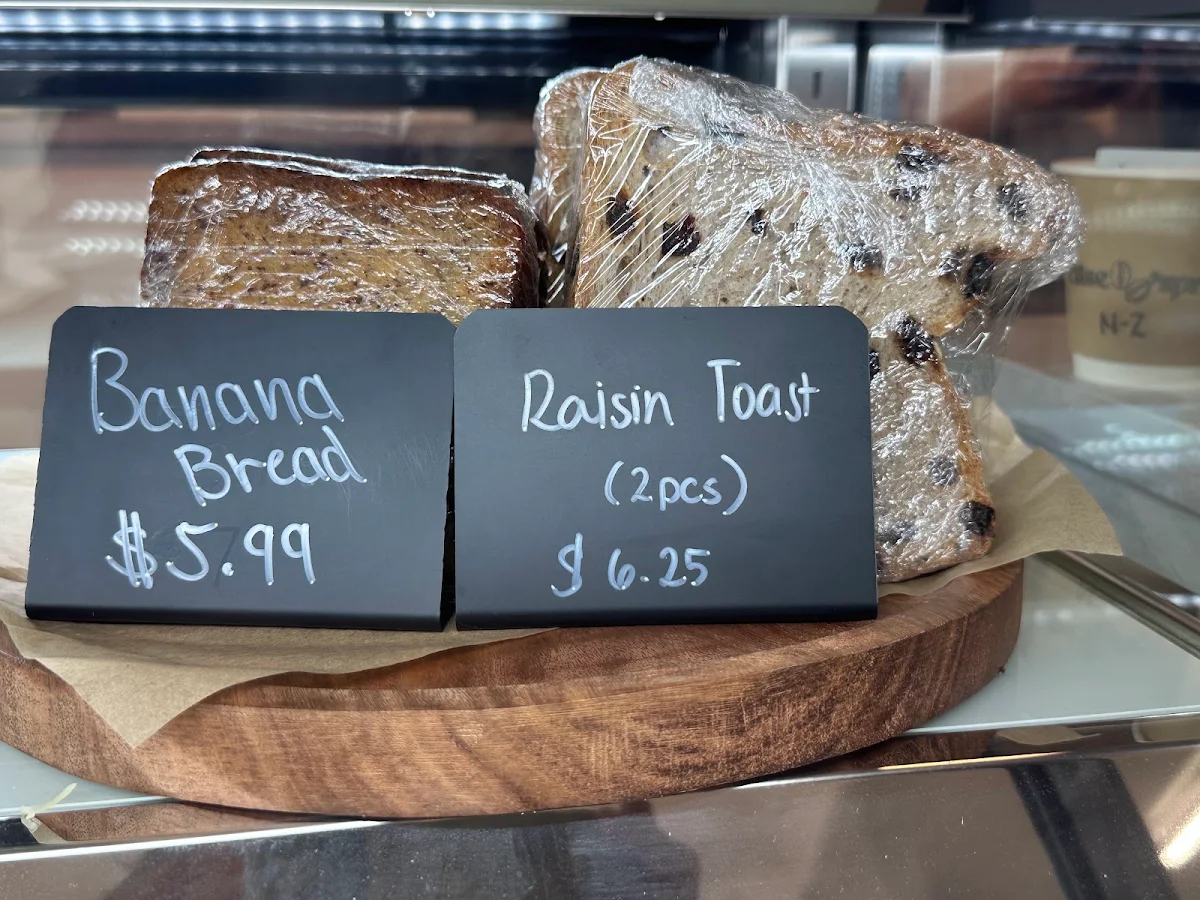 Banana
Bread
$5.99
Raisin Toast
(2pcs)
$6.25
N-Z